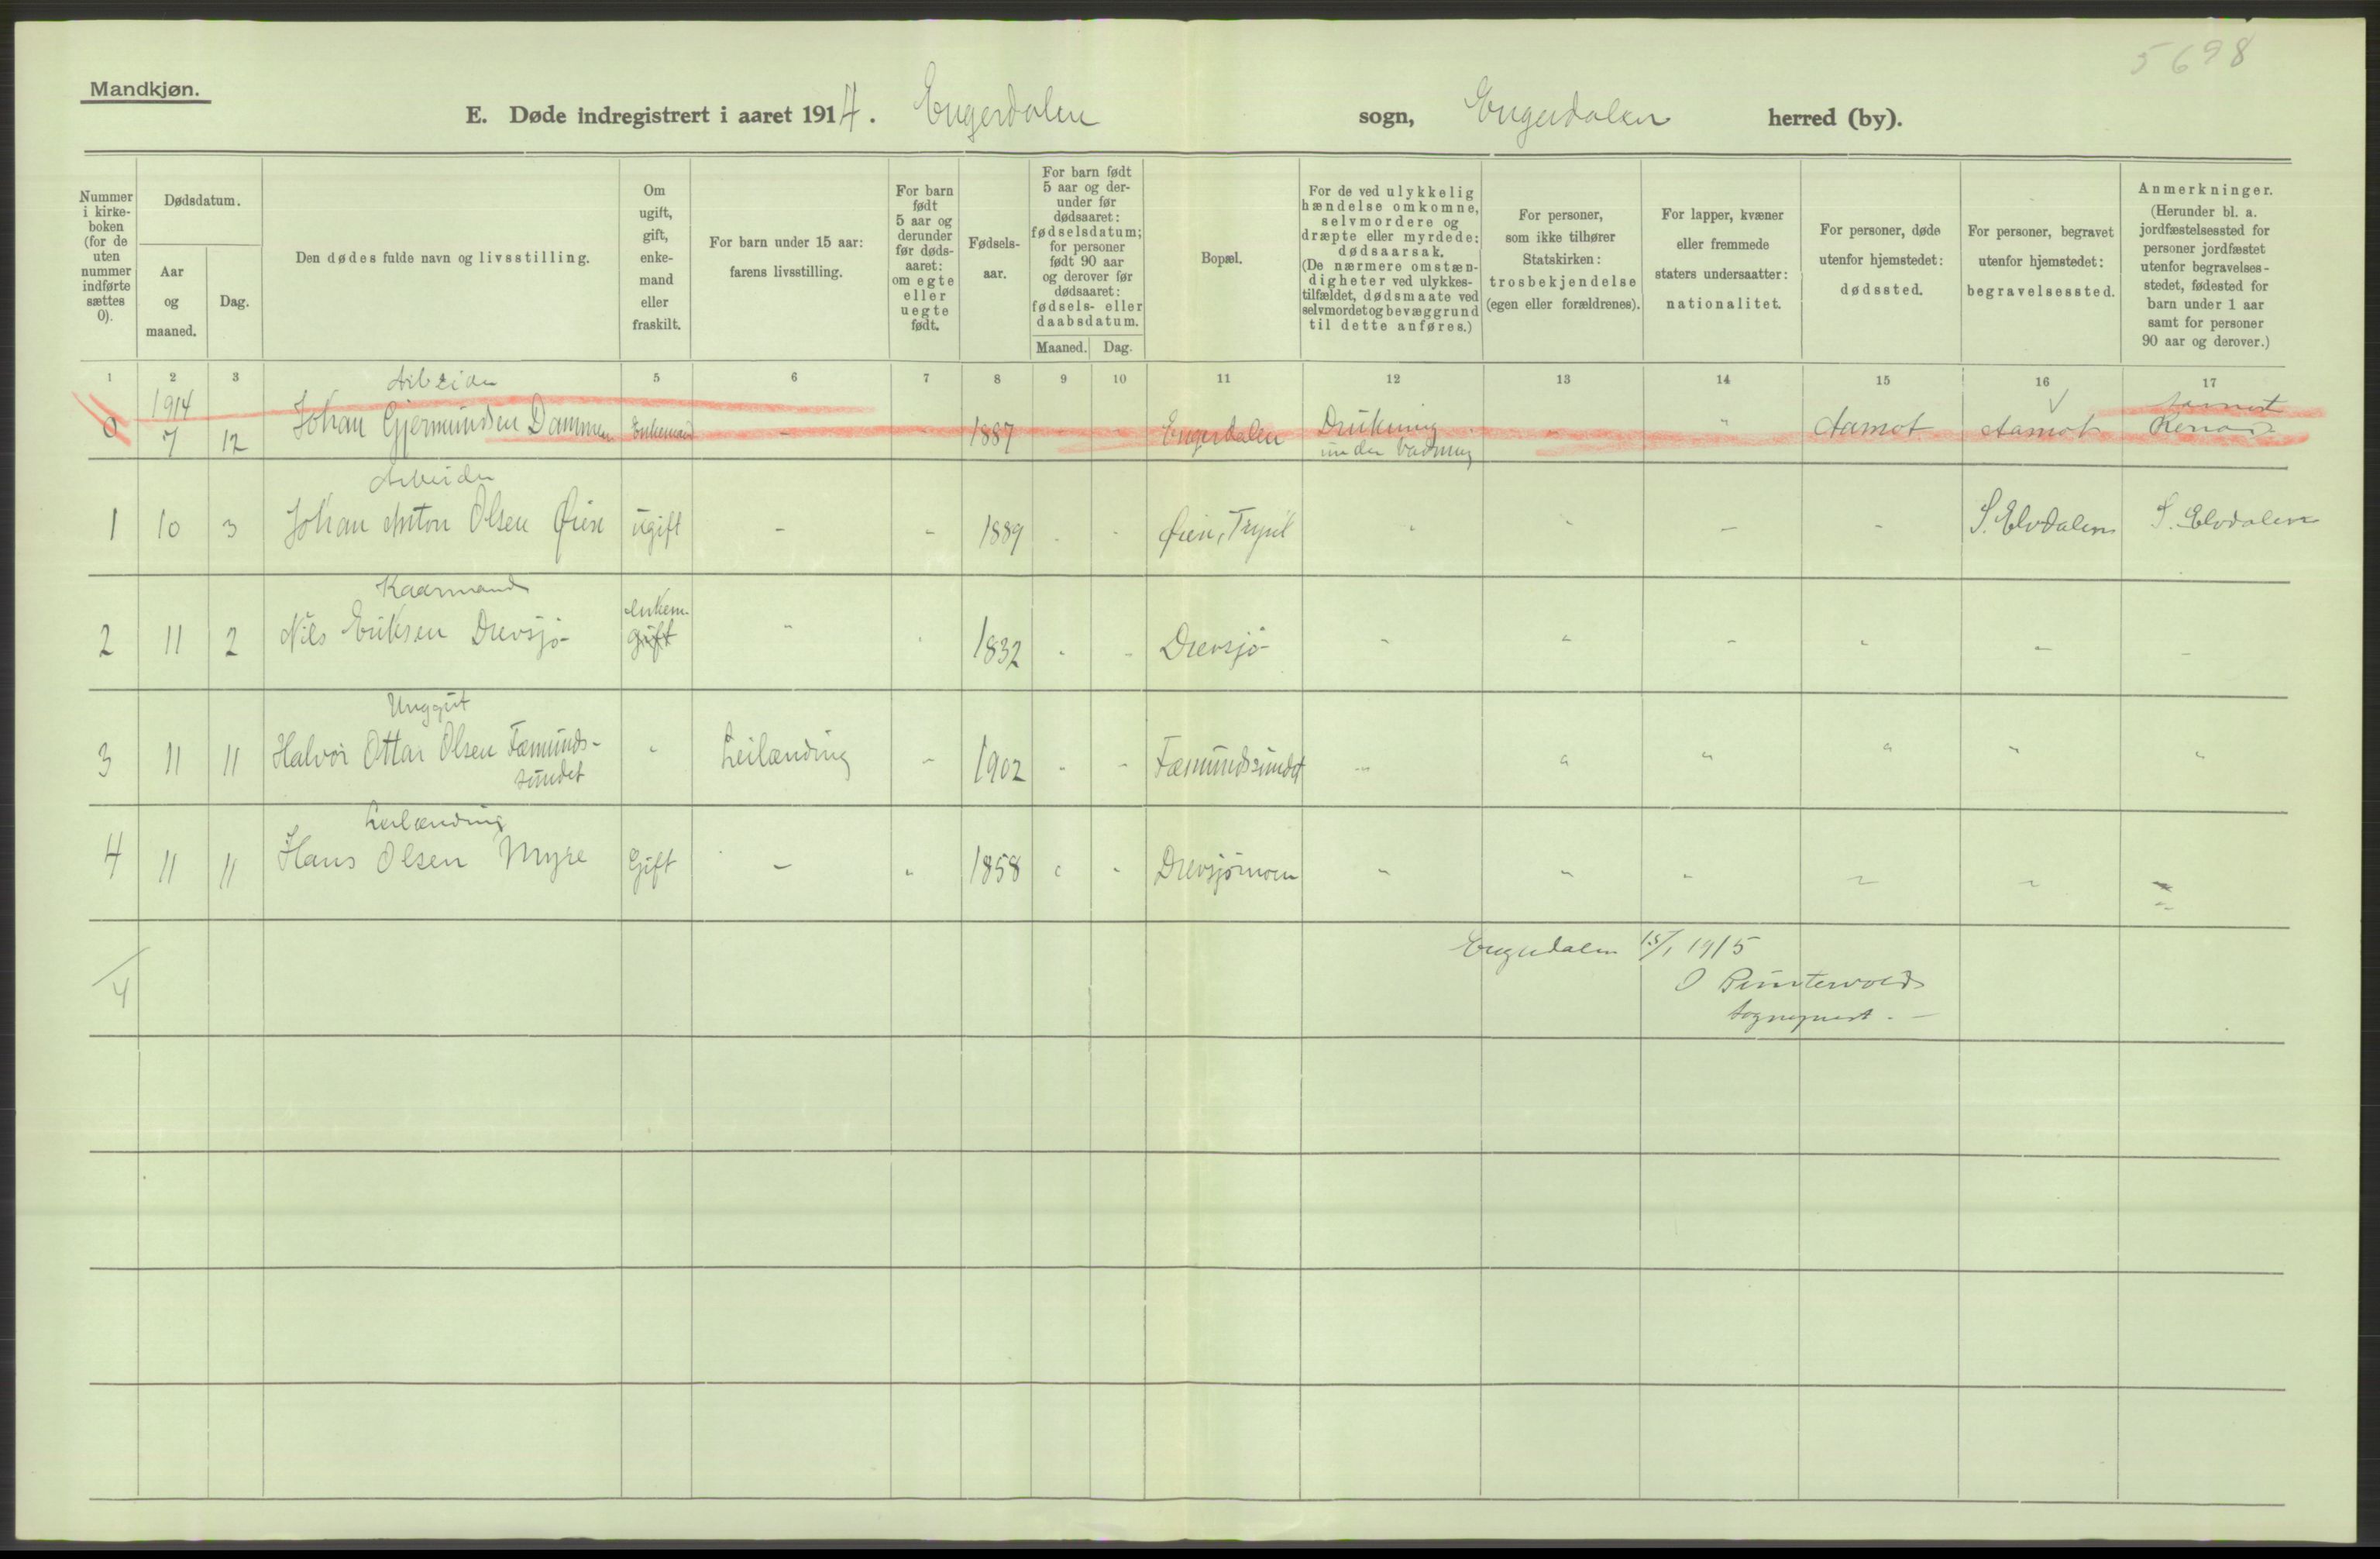 5698
Mandkjøn.
E. Døde indregistrert i aaret 1914. Engerdalen sogn, Engerdalen herred (by).
Nummer i kirke- boken (for de uten nummer indførte sættes 0).
Dødsdatum.
Aar og maaned.
Dag.
Den dødes fulde navn og livsstilling.
Om ugift, gift, enke- mand eller fraskilt.
For barn under 15 aar: farens livsstilling.
For barn født 5 aar og derunder før døds- aaret: om egte eller uegte født.
Fødsels- aar.
For barn født 5 aar og der- under før dødsaaret: fødselsdatum; for personer født 90 aar og derover før dødsaaret: fødsels- eller daabsdatum.
Maaned. Dag.
Bopæl.
For de ved ulykkelig hændelse omkomne, selvmordere og dræpte eller myrdede: dødsaarsak. (De nærmere omstæn- digheter ved ulykkes- tilfældet, dødsmaate ved selvmordet og bevæggrund til dette anføres.)
For personer, som ikke tilhører Statskirken: trosbekjendelse (egen eller forældrenes).
For lapper, kvæner eller fremmede staters undersaatter: nationalitet.
For personer, døde utenfor hjemstedet: dødssted.
For personer, begravet utenfor hjemstedet: begravelsessted.
Anmerkninger. (Herunder bl. a. jordfæstelsessted for personer jordfæstet utenfor begravelses- stedet, fødested for barn under 1 aar samt for personer 90 aar og derover.)
1 2 3 5 6 7 8 9 10 11 12 13 14 15 16 17
Arbeider
1914
0 7 12 Johan Gjermundsen Dammen Enkemand - - 1887 - - Engerdalen Drukning - " Aamot Aamot
under Vadning
Arbeider
1 10 3 Johan Anton Olsen Øien ugift - - 1889 - - Øien, Trysil - - - - S. Elvdalen S. Elvdalen
Kaarmand
Enkem.
2 11 2 Nils Eriksen Drevsjø gift " - 1832 - - Drevsjø - - - - - -
Unggut
3 11 11 Halvor Ottar Olsen Fæmunds- " Leilænding - 1902 - - Fæmundssundet - " " " " "
sundet
Leilænding
4 11 11 Hans Olsen Myre Gift - " 1858 " " Drevsjømoen - - - - - -
Engerdalen 15/1 1915
4
O
Sogneprest. -